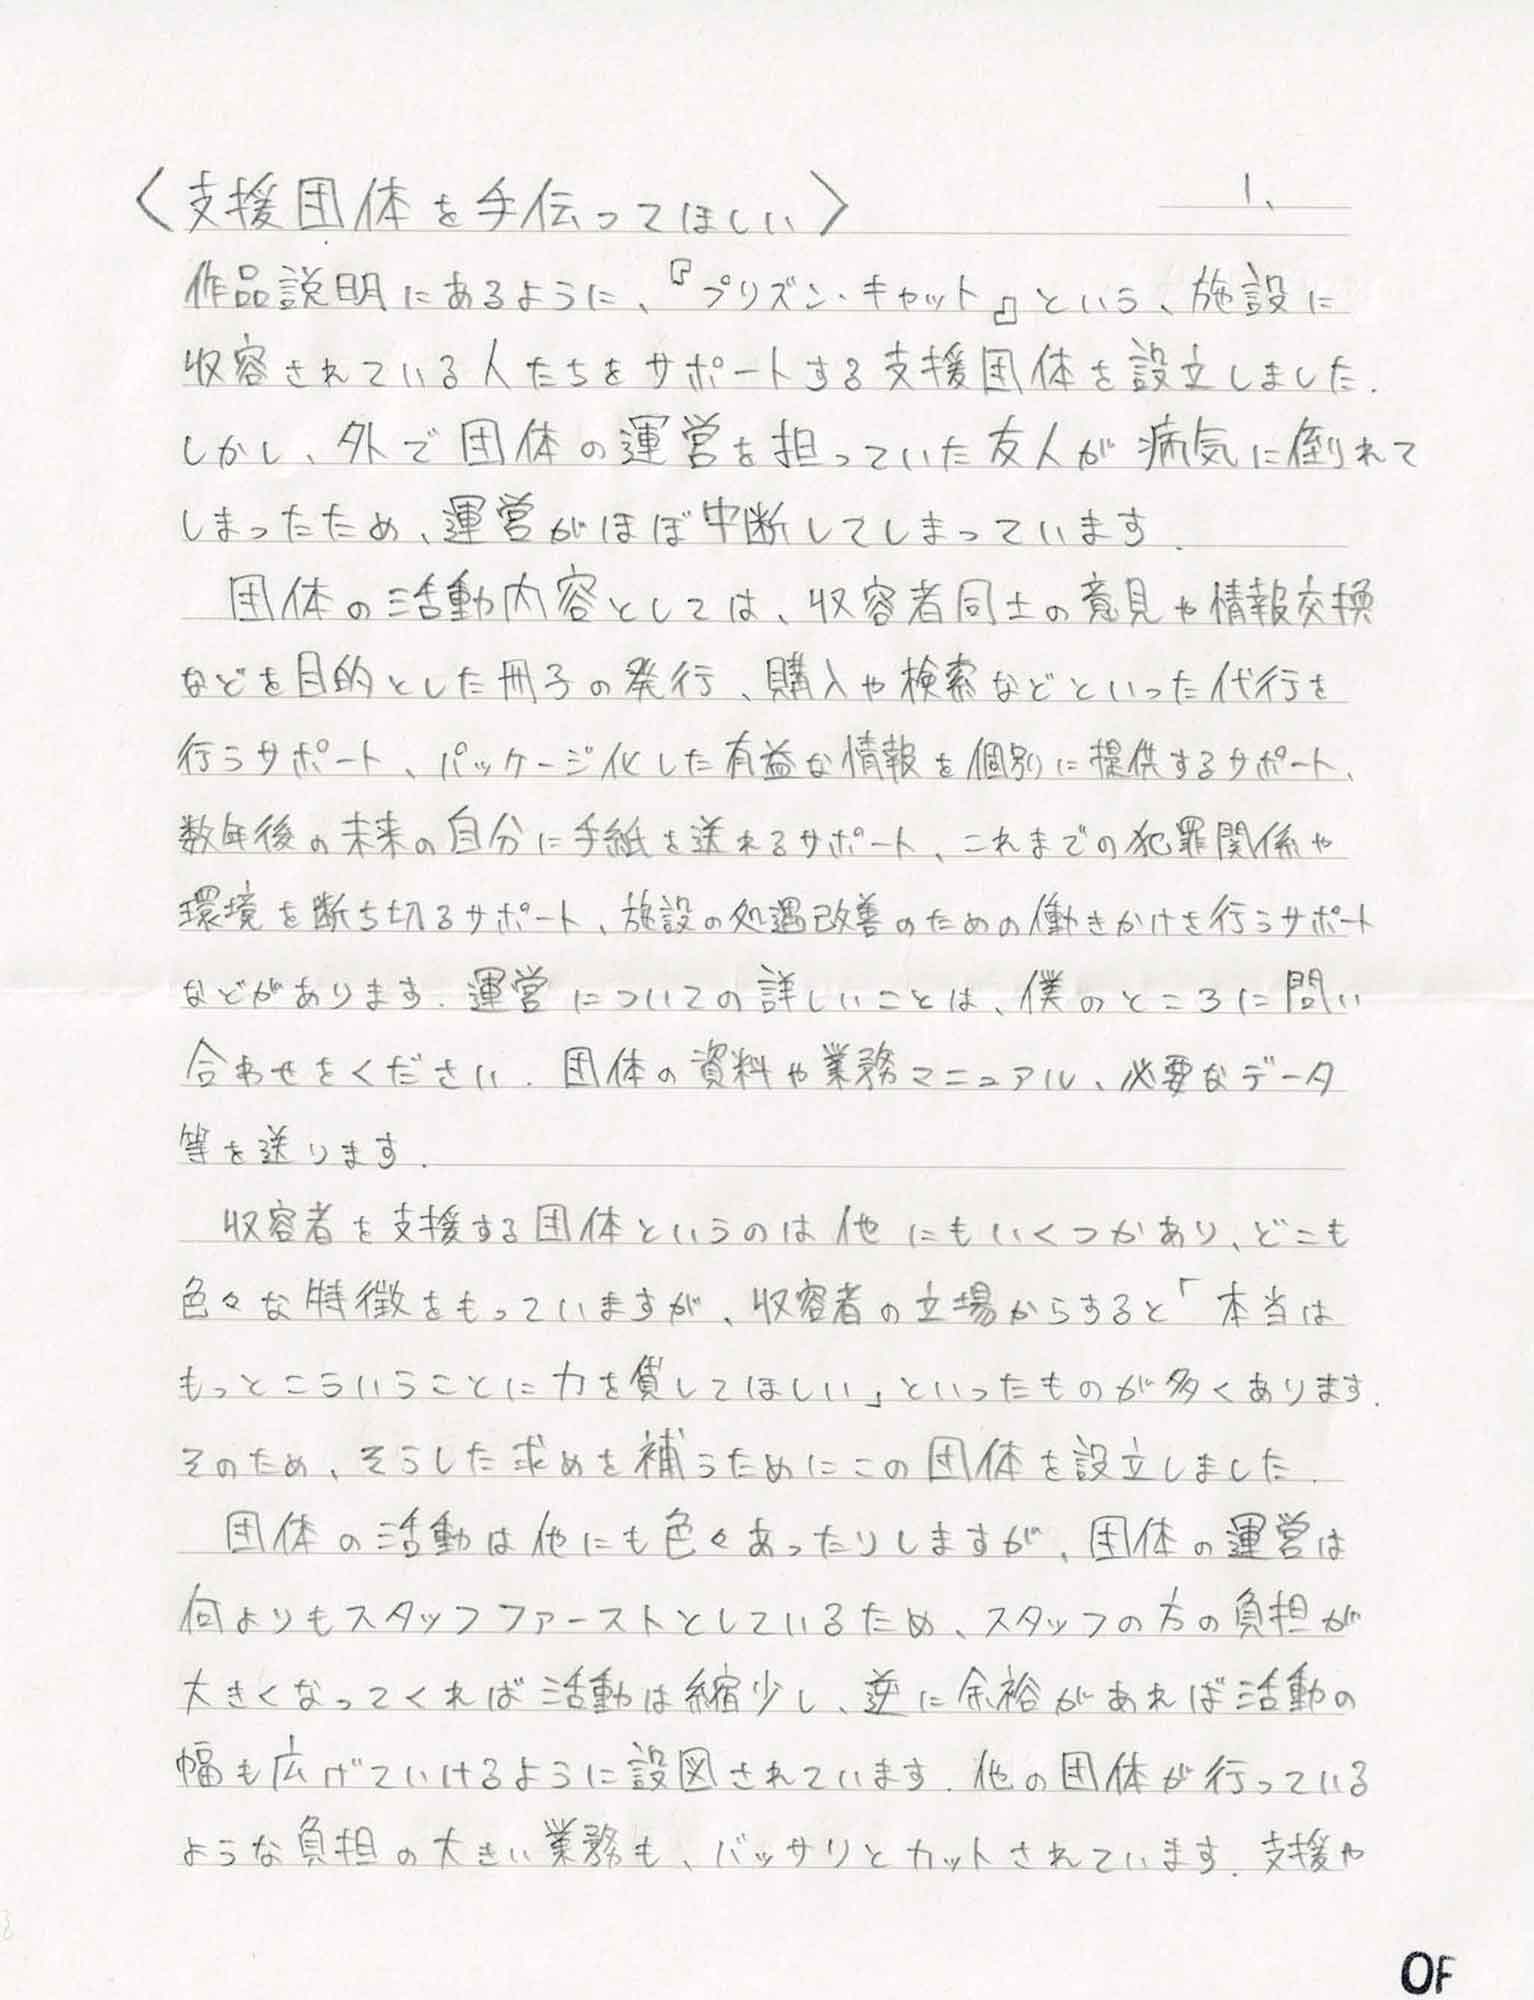 〈支援団体を手伝ってほしい〉 1、
作品説明にあるように、『プリズン・キャット』という、施設に
収容されている人たちをサポートする支援団体を設立しました.
しかし、外で団体の運営を担っていた友人が病気に倒れて
しまったため、運営がほぼ中断してしまっています.
団体の活動内容としては、収容者同士の意見や情報交換
などを目的とした冊子の発行、購入や検索などといった代行を
行うサポート、パッケージ化した有益な情報を個別に提供するサポート、
数年後の未来の自分に手紙を送れるサポート、これまでの犯罪関係や
環境を断ち切るサポート、施設の処遇改善のための働きかけを行うサポート
などがあります.運営についての詳しいことは、僕のところに問い
合わせをください.団体の資料や業務マニュアル、必要なデータ
等を送ります.
収容者を支援する団体というのは他にもいくつかあり、どこも
色々な特徴をもっていますが、収容者の立場からすると「本当は
もっとこういうことに力を貸してほしい」といったものが多くあります.
そのため、そうした求めを補うためにこの団体を設立しました.
団体の活動は他にも色々あったりしますが、団体の運営は
何よりもスタッフファーストとしているため、スタッフの方の負担が
大きくなってくれば活動は縮少し、逆に余裕があれば活動の
幅も広げていけるように設図されています.他の団体が行っている
ような負担の大きい業務も、バッサリとカットされています.支援や
OF